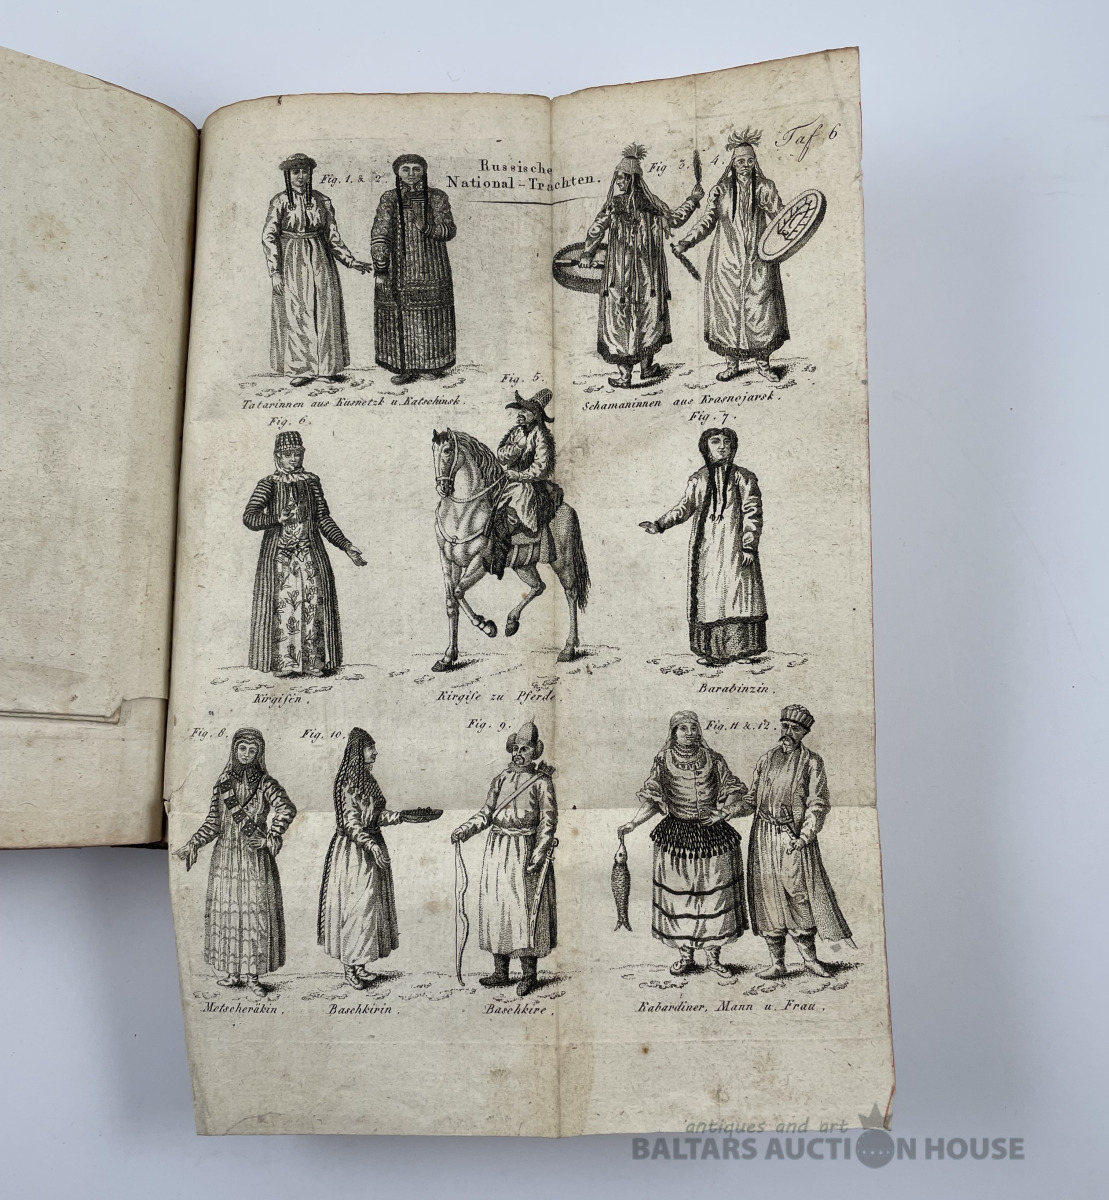 Taf 6
Russische
National-Trachten.
Fig. 1. & 2.
Fig. 3. 4.
Tatarinnen aus Kusnetzk u. Katschinsk.
Schamaninnen aus Krasnojarsk.
Fig. 5.
Fig. 6.
Fig. 7.
Kirgisen.
Kirgise zu Pferde.
Barabinzin.
Fig. 8.
Fig. 10.
Fig. 9.
Fig. 11 & 12.
Metscheräkin.
Baschkirin.
Baschkire.
Kabardiner, Mann u. Frau.
antiques and art
BALTARS AUCTION HOUSE